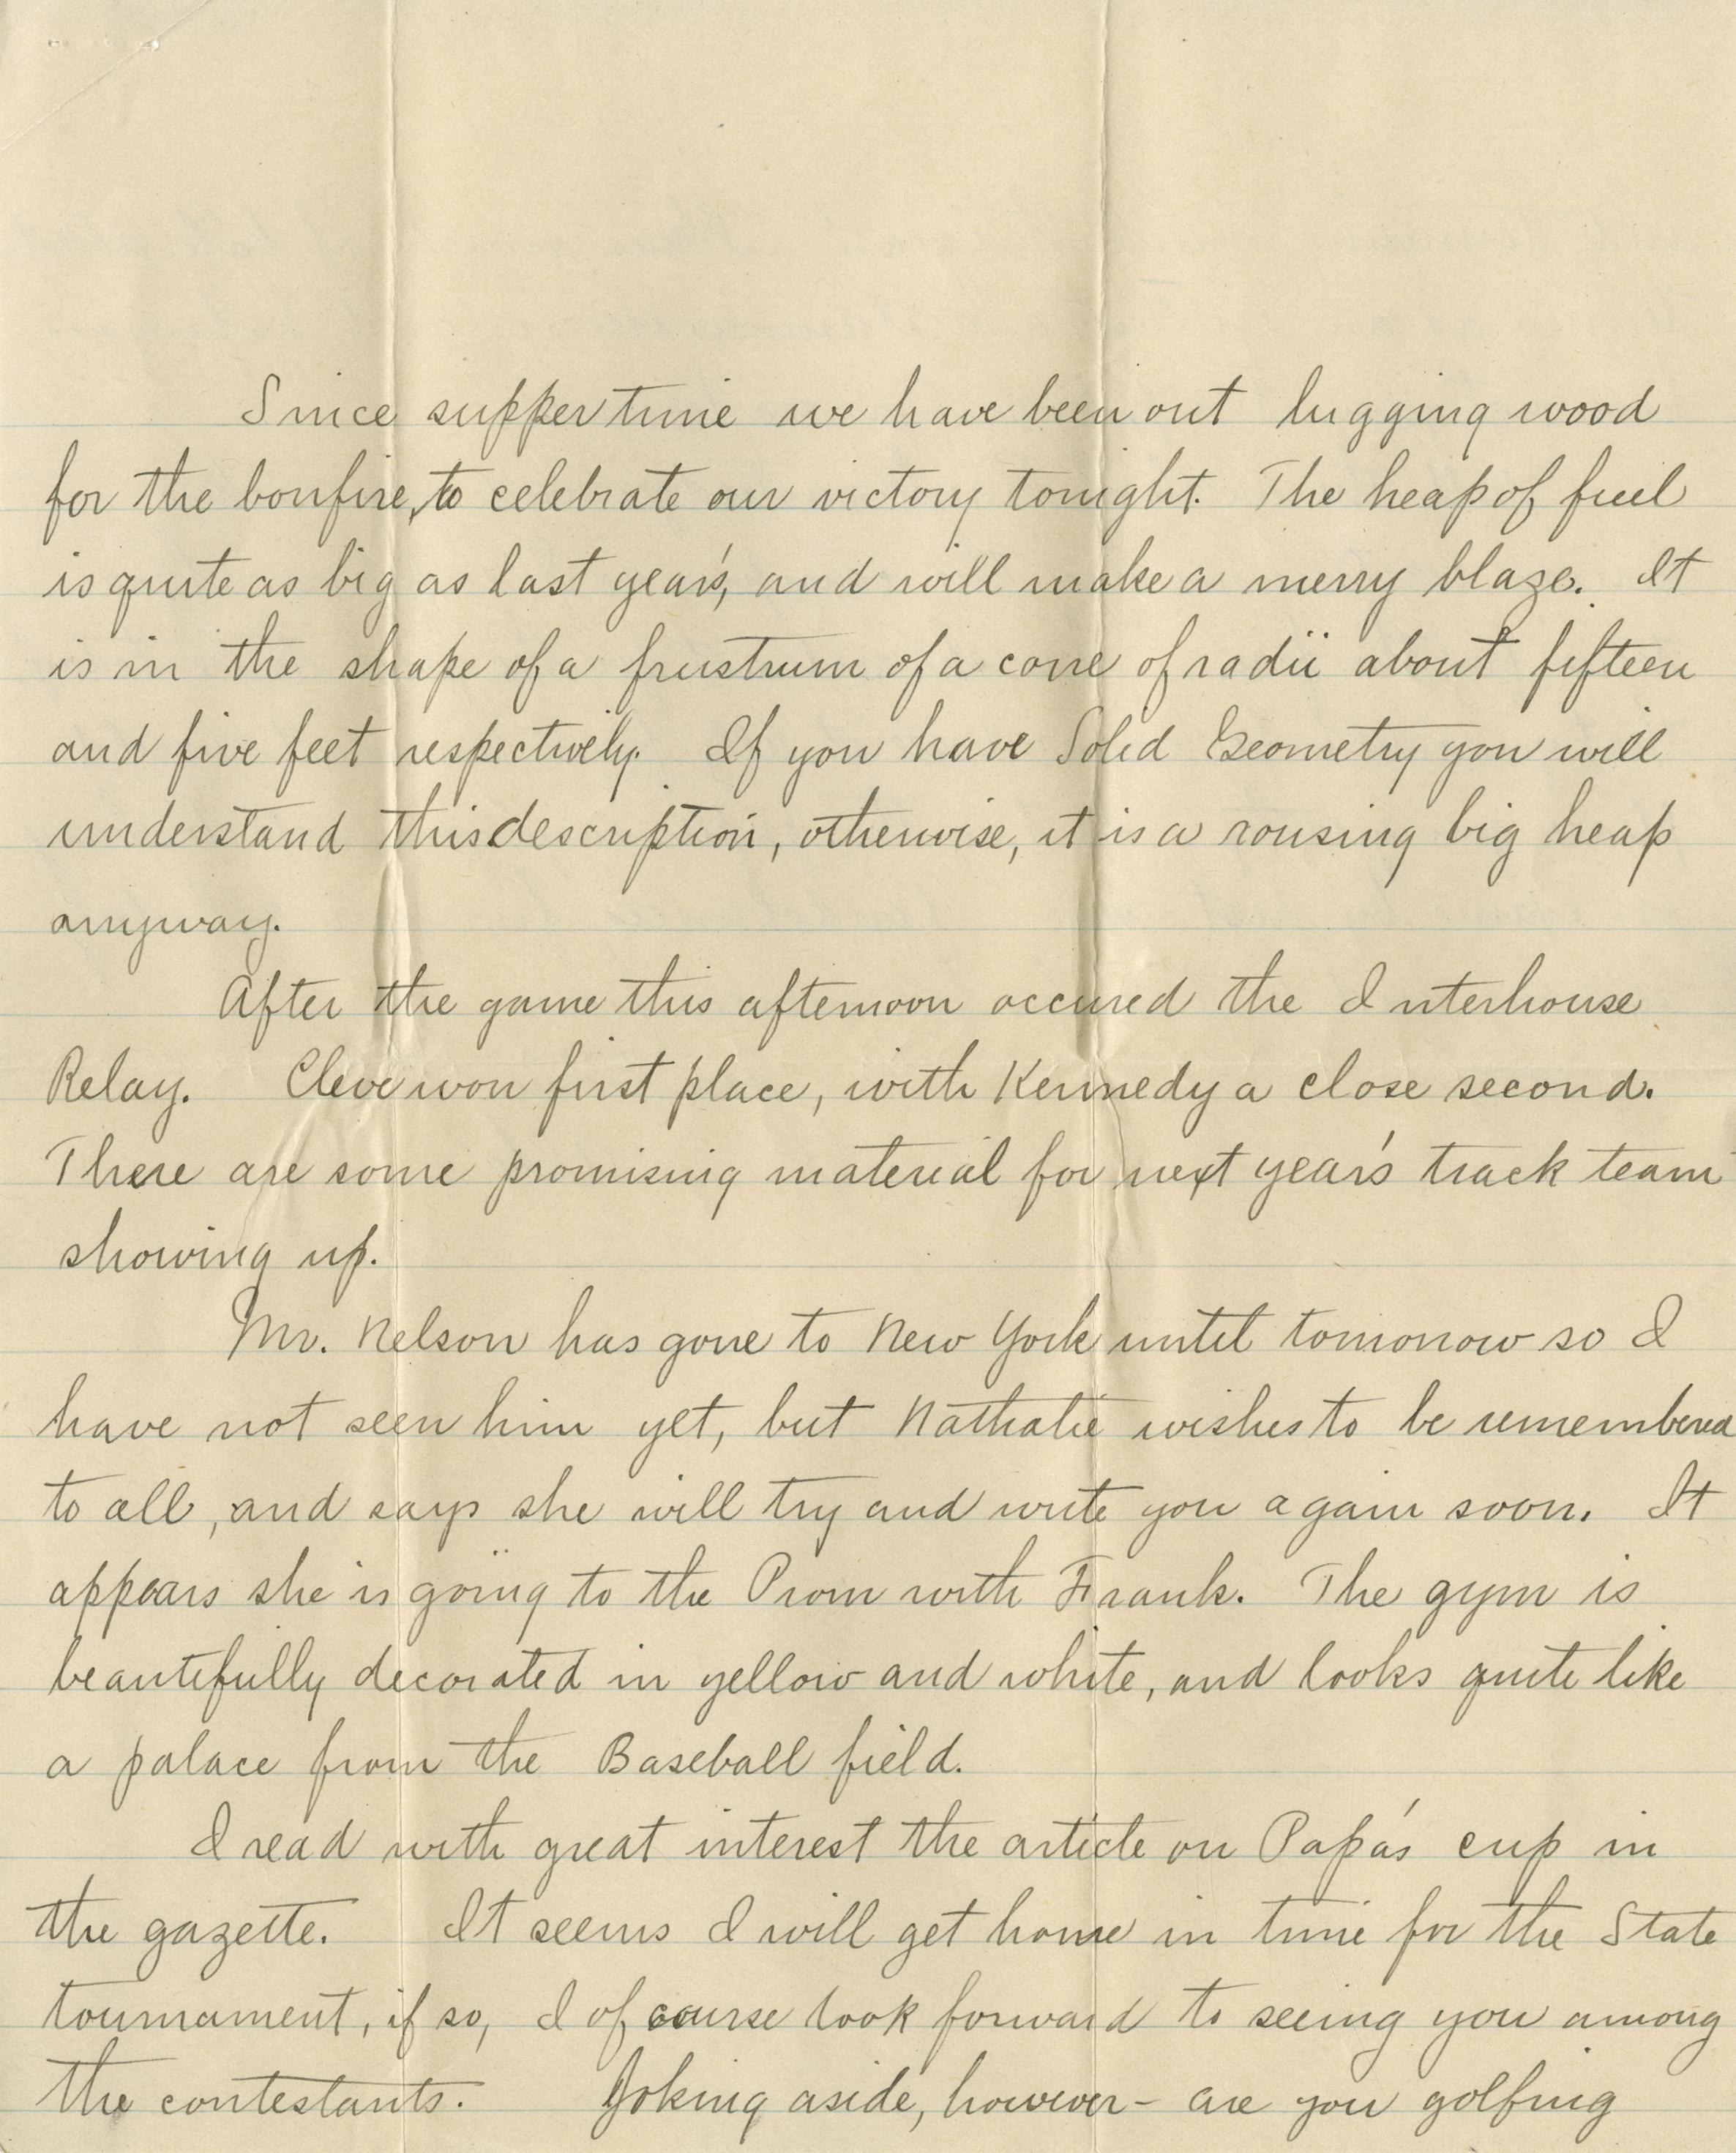 Since supper time we have been out lugging wood
for the bonfire, to celebrate our victory tonight. The heap of fuel
is quite as big as last year's, and will make a merry blaze. It
is in the shape of a frustrum of a cone of radii about fifteen
and five feet respectively. If you have Solid Geometry you will
understand this description, otherwise, it is a rousing big heap
anyway.
After the game this afternoon occured the Interhouse
Relay. Cleve won first place, with Kennedy a close second.
There are some promising material for next year's track team
showing up.
Mr. Nelson has gone to New York until tomorrow so I
have not seen him yet, but Nathalie wishes to be remembered
to all, and says she will try and write you again soon. It
appears she is going to the Prom with Frank. The gym is
beautifully decorated in yellow and white, and looks quite like
a palace from the Baseball field.
I read with great interest the article on Papa's cup in
the gazette. It seems I will get home in time for the State
tournament, if so, I of course look forward to seeing you among
the contestants. Joking aside, however - are you golfing